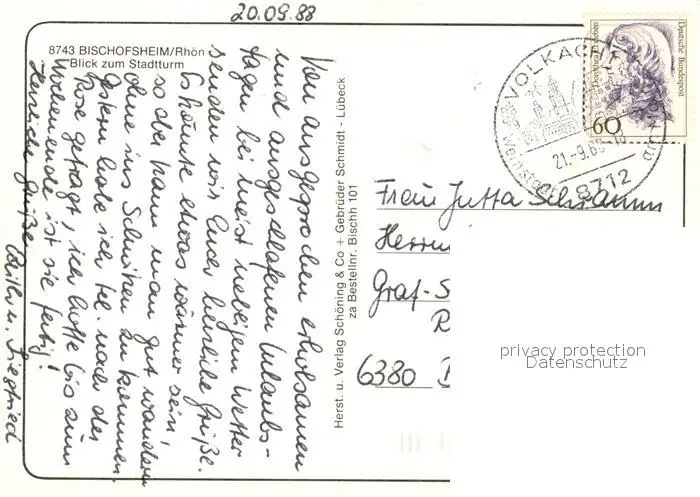 20.09.88
8743 BISCHOFSHEIM/Rhön
Blick zum Stadtturm
Von ausgesprochen erholsamen
und ausgeschlafenen Urlaubs-
tagen bei meist nebeligem Wetter
senden wir Euch herzliche Grüße.
Es könnte etwas wärmer sein,
so aber kann man gut wandern
ohne ins Schwitzen zu kommen.
Gestern habe ich tel. nach der
Rose gefragt, ich hoffe bis zum
Wochenende ist sie fertig!
Herzliche Grüße
u. Siegfried
Herst. u. Verlag Schöning & Co + Gebrüder Schmidt - Lübeck
za Bestellnr. Bischh 101
Deutsche Bundespost
60
VOLKACH
21.-9.88-18
8712
Frau Jutta Schramm
Herrn
Graf-S
R
6380
privacy protection
Datenschutz